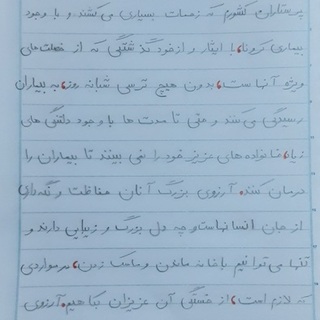 پرستاران کشورم که زحمات بسیاری می کشند و با وجود
بیماری کرونا، با ایثار و از خود گذشتگی که از خصلت های
ویژه آنهاست، بدون هیچ ترسی شبانه روز، به بیماران
رسیدگی می کنند و حتی تا مدت ها با وجود دلتنگی های
زیاد، خانواده های عزیز خود را نمی بینند تا بیماران را
درمان کنند. آرزوی بزرگ آنان حفاظت و نگهداری
از جان انسانهاست و چه دل بزرگ و زیبایی دارند و
تنها می توانیم با خانه ماندن و ماسک زدن، در مواردی
که لازم است، از خستگی آن عزیزان بکاهیم. آرزوی